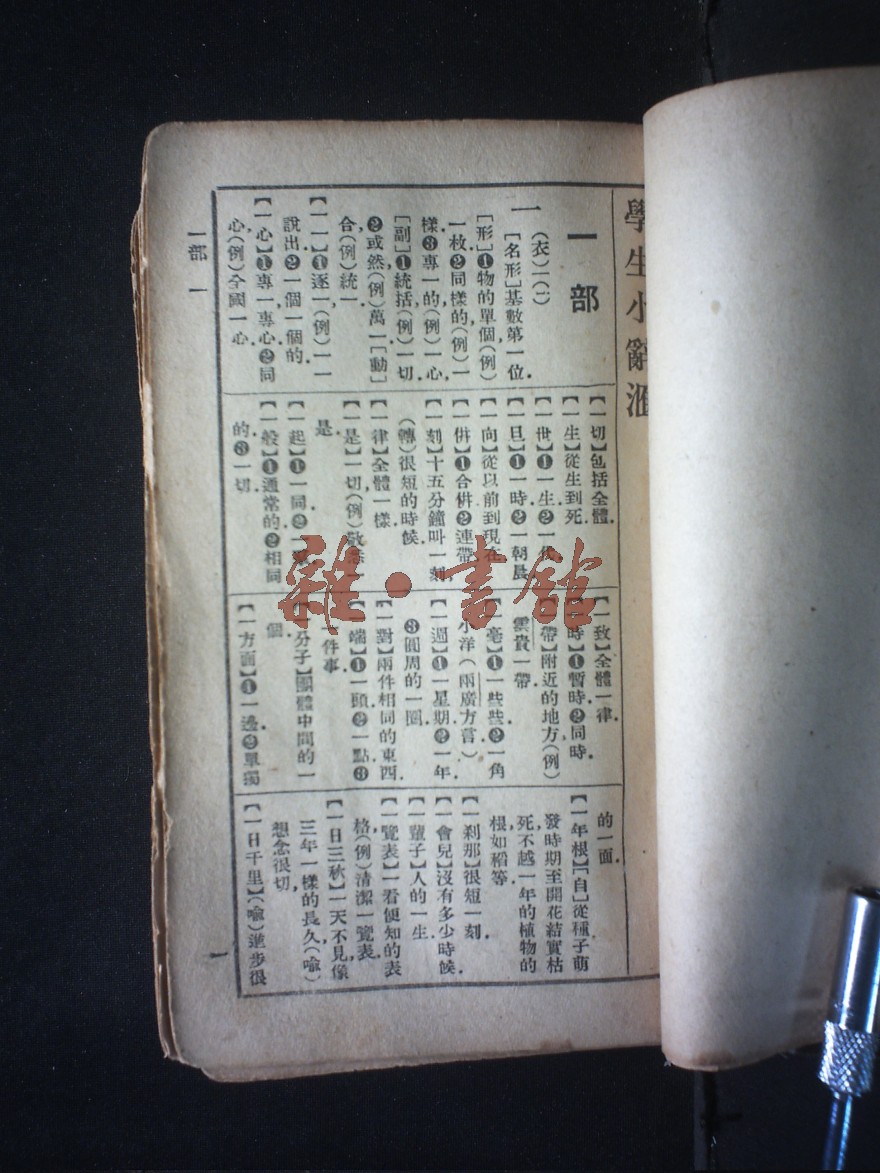 學生小辭滙
一部
一
(衣)ㄧ(ㄧ)
[名形]基數第一位.
[形]❶物的單個(例)
一枚❷同樣的(例)一
樣❸專一的(例)一心,
[副]❶統括(例)一切
❷或然(例)萬一[動]
合(例)統一.
【一一】❶逐一,(例)一一
說出❷一個一個的.
【一心】❶專一,專心❷同
心,(例)全國一心.
【一切】包括全體.
【一生】從生到死.
【一世】❶一生❷一代.
【一旦】❶一時❷一朝晨
【一向】從以前到現在
【一併】❶合併❷連帶.
【一刻】十五分鐘叫一刻,
(轉)很短的時候.
【一律】全體一樣.
【一是】一切,(例)敬悉一
是.
【一起】❶一同❷一
【一般】❶通常的❷相同
的❸一切.
【一致】全體一律.
【一時】❶暫時❷同時.
【一帶】附近的地方,(例)
雲貴一帶.
【一毫】❶一些些❷一角
小洋(兩廣方言)
【一週】❶一星期❷一年
❸圓周的一圈.
【一對】兩件相同的東西.
【一端】❶一頭❷一點❸
一件事.
【一分子】團體中間的一
個.
【一方面】❶一邊❷單獨
的一面.
【一年根】[自]從種子萌
發時期至開花結實枯
死,不越一年的植物的
根,如稻等.
【一刹那】很短一刻.
【一會兒】沒有多少時候.
【一輩子】人的一生.
【一覽表】一看便知的表
格,(例)清潔一覽表.
【一日三秋】一天不見,像
三年一樣的長久,(喻)
想念很切.
【一日千里】(喻)進步很
一部 一
一
雜·書館